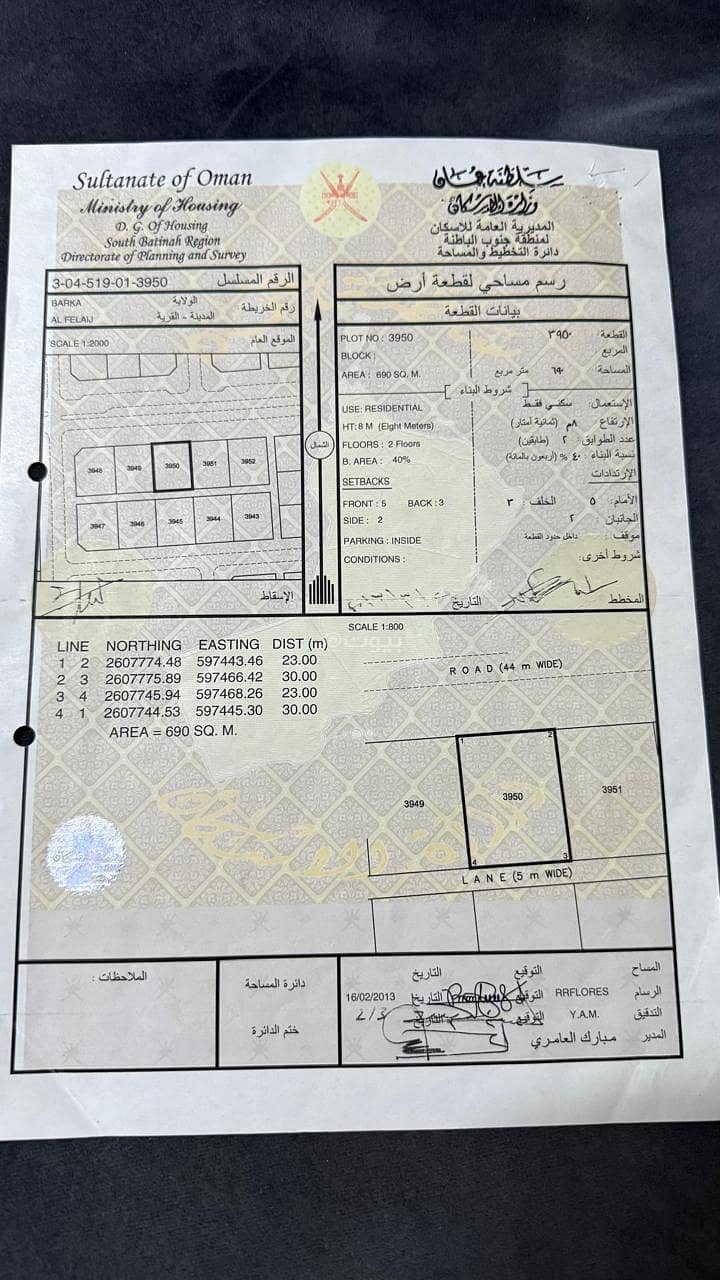 Sultanate of Oman
Ministry of Housing
D. G. Of Housing
South Batinah Region
Directorate of Planning and Survey
سلطنة عمان
وزارة الإسكان
المديرية العامة للاسكان
لمنطقة جنوب الباطنة
دائرة التخطيط والمساحة
3-04-519-01-3950 الرقم المسلسل
BARKA الولاية
AL FELAIJ المدينة - القرية
رقم الخريطة
SCALE 1:2000 الموقع العام
3948 3949 3950 3951 3952
3947 3946 3945 3944 3943
الإسقاط
الشمال
رسم مساحي لقطعة أرض
بيانات القطعة
PLOT NO : 3950 القطعة : ٣٩٥٠
BLOCK : المربع
AREA : 690 SQ. M. المساحة : ٦٩٠ متر مربع
شروط البناء
USE: RESIDENTIAL الإستعمال: سكني فقط
HT: 8 M (Eight Meters) الإرتفاع : ٨م (ثمانية أمتار)
FLOORS : 2 Floors عدد الطوابق: ٢ (طابقين)
B. AREA : 40% نسبة البناء : ٤٠ % (أربعون بالمائة)
SETBACKS الإرتدادات
FRONT : 5 BACK : 3 الأمام: ٥ الخلف : ٣
SIDE : 2 الجانبان : ٢
PARKING : INSIDE موقف : داخل حدود القطعة
CONDITIONS : شروط أخرى:
المخطط التاريخ
SCALE 1:800
LINE NORTHING EASTING DIST (m)
1 2 2607774.48 597443.46 23.00
2 3 2607775.89 597466.42 30.00
3 4 2607745.94 597468.26 23.00
4 1 2607744.53 597445.30 30.00
AREA = 690 SQ. M.
ROAD (44 m WIDE)
1 2
3949 3950 3951
4 3
LANE (5 m WIDE)
الملاحظات :
دائرة المساحة
ختم الدائرة
المساح التوقيع التاريخ
الرسام RRFLORES التوقيع التاريخ 16/02/2013
التدقيق Y.A.M. التوقيع التاريخ 2/3
المدير مبارك العامري